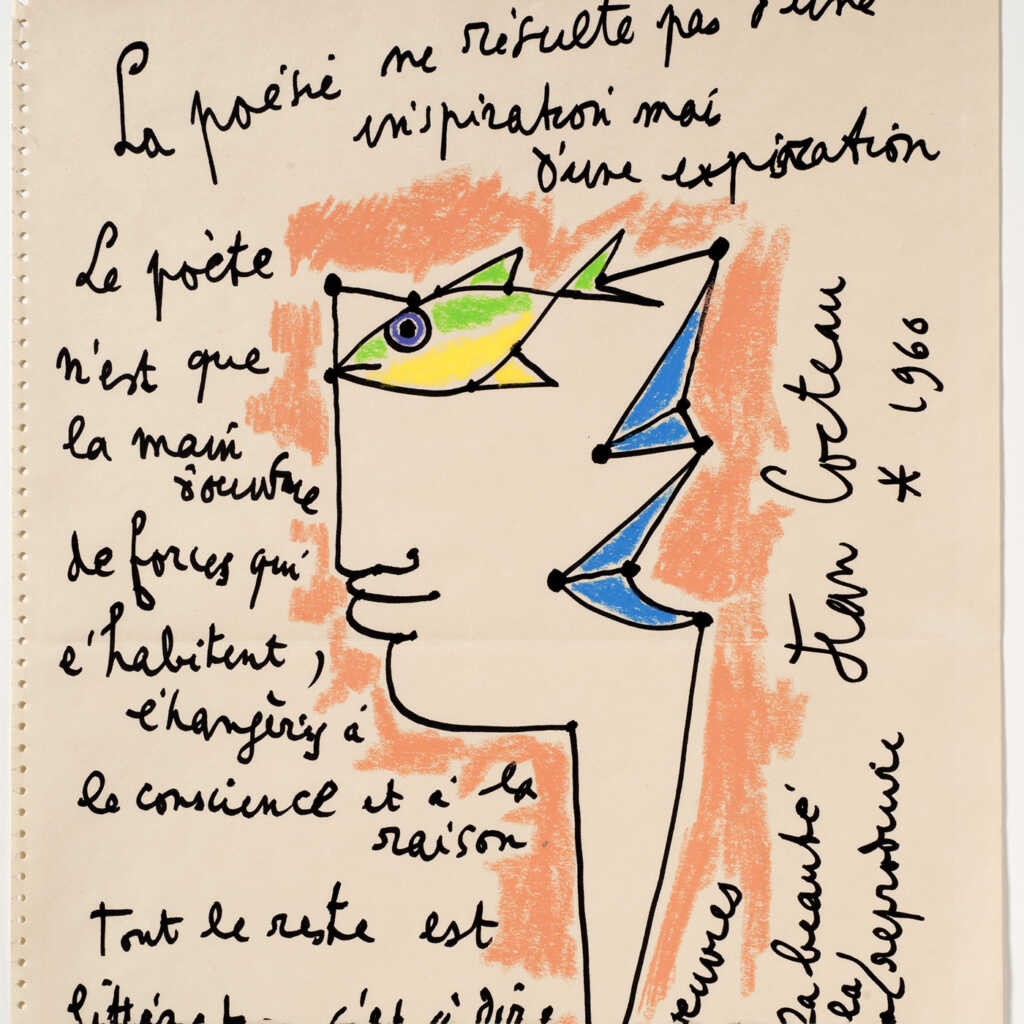 La poésie ne résulte pas d'une
inspiration mai
d'une expiration
Le poète
n'est que
la main
d'œuvre
de forces qui
l'habitent,
étrangères à
la conscience et à la
raison
Tout le reste est
c'est à dire
Jean Cocteau
* 1960
la beauté
la
reproduire